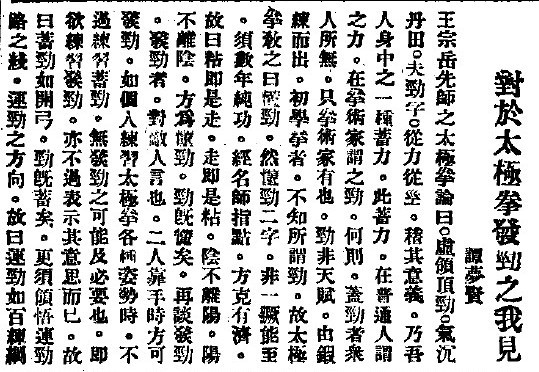 對於太極拳發勁之我見
譚夢賢
王宗岳先師之太極拳論曰。虛領頂勁。氣沉
丹田。夫勁字。從力從巠。稽其意義。乃吾
人身中之一種蓄力。此蓄力。在普通人謂
之力。在拳術家謂之勁。何則。蓋勁者衆
人所無。只拳術家有也。勁非天賦。由鍛
練而出。初學拳者。不知所謂勁。故太極
拳教之曰懂勁。然懂勁二字。非一蹶能至
。須數年純功。經名師指點。方克有濟。
故曰粘即是走。走即是粘。陰不離陽。陽
不離陰。方爲懂勁。勁旣懂矣。再談發勁
。發勁者。對敵人言也。二人靠手時方可
發勁。如個人練習太極拳各種姿勢時。不
過練習蓄勁。無發勁之可能及必要也。即
欲練習發勁。亦不過表示其意思而已。故
曰蓄勁如開弓。勁旣蓄矣。更須領悟運勁
路之綫。運勁之方向。故曰運勁如百練鋼